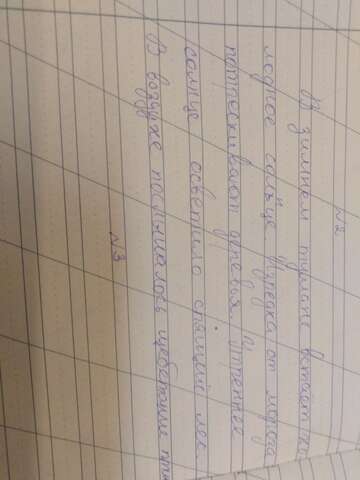 №2
В зимнем тумане встаёт
лодное солнце. Изредка от мороза
потрескивают деревья. Утреннее
солнце осветило спящий лес
В воздухе послышалось щебетание
№3